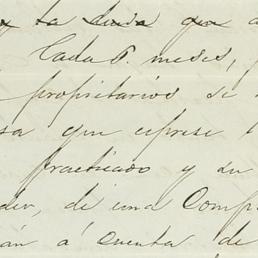 y la deuda que a
Cada 6. meses,
propietarios se
sa que esprese l
practicado y su
der, de una Comp
án á cuenta de